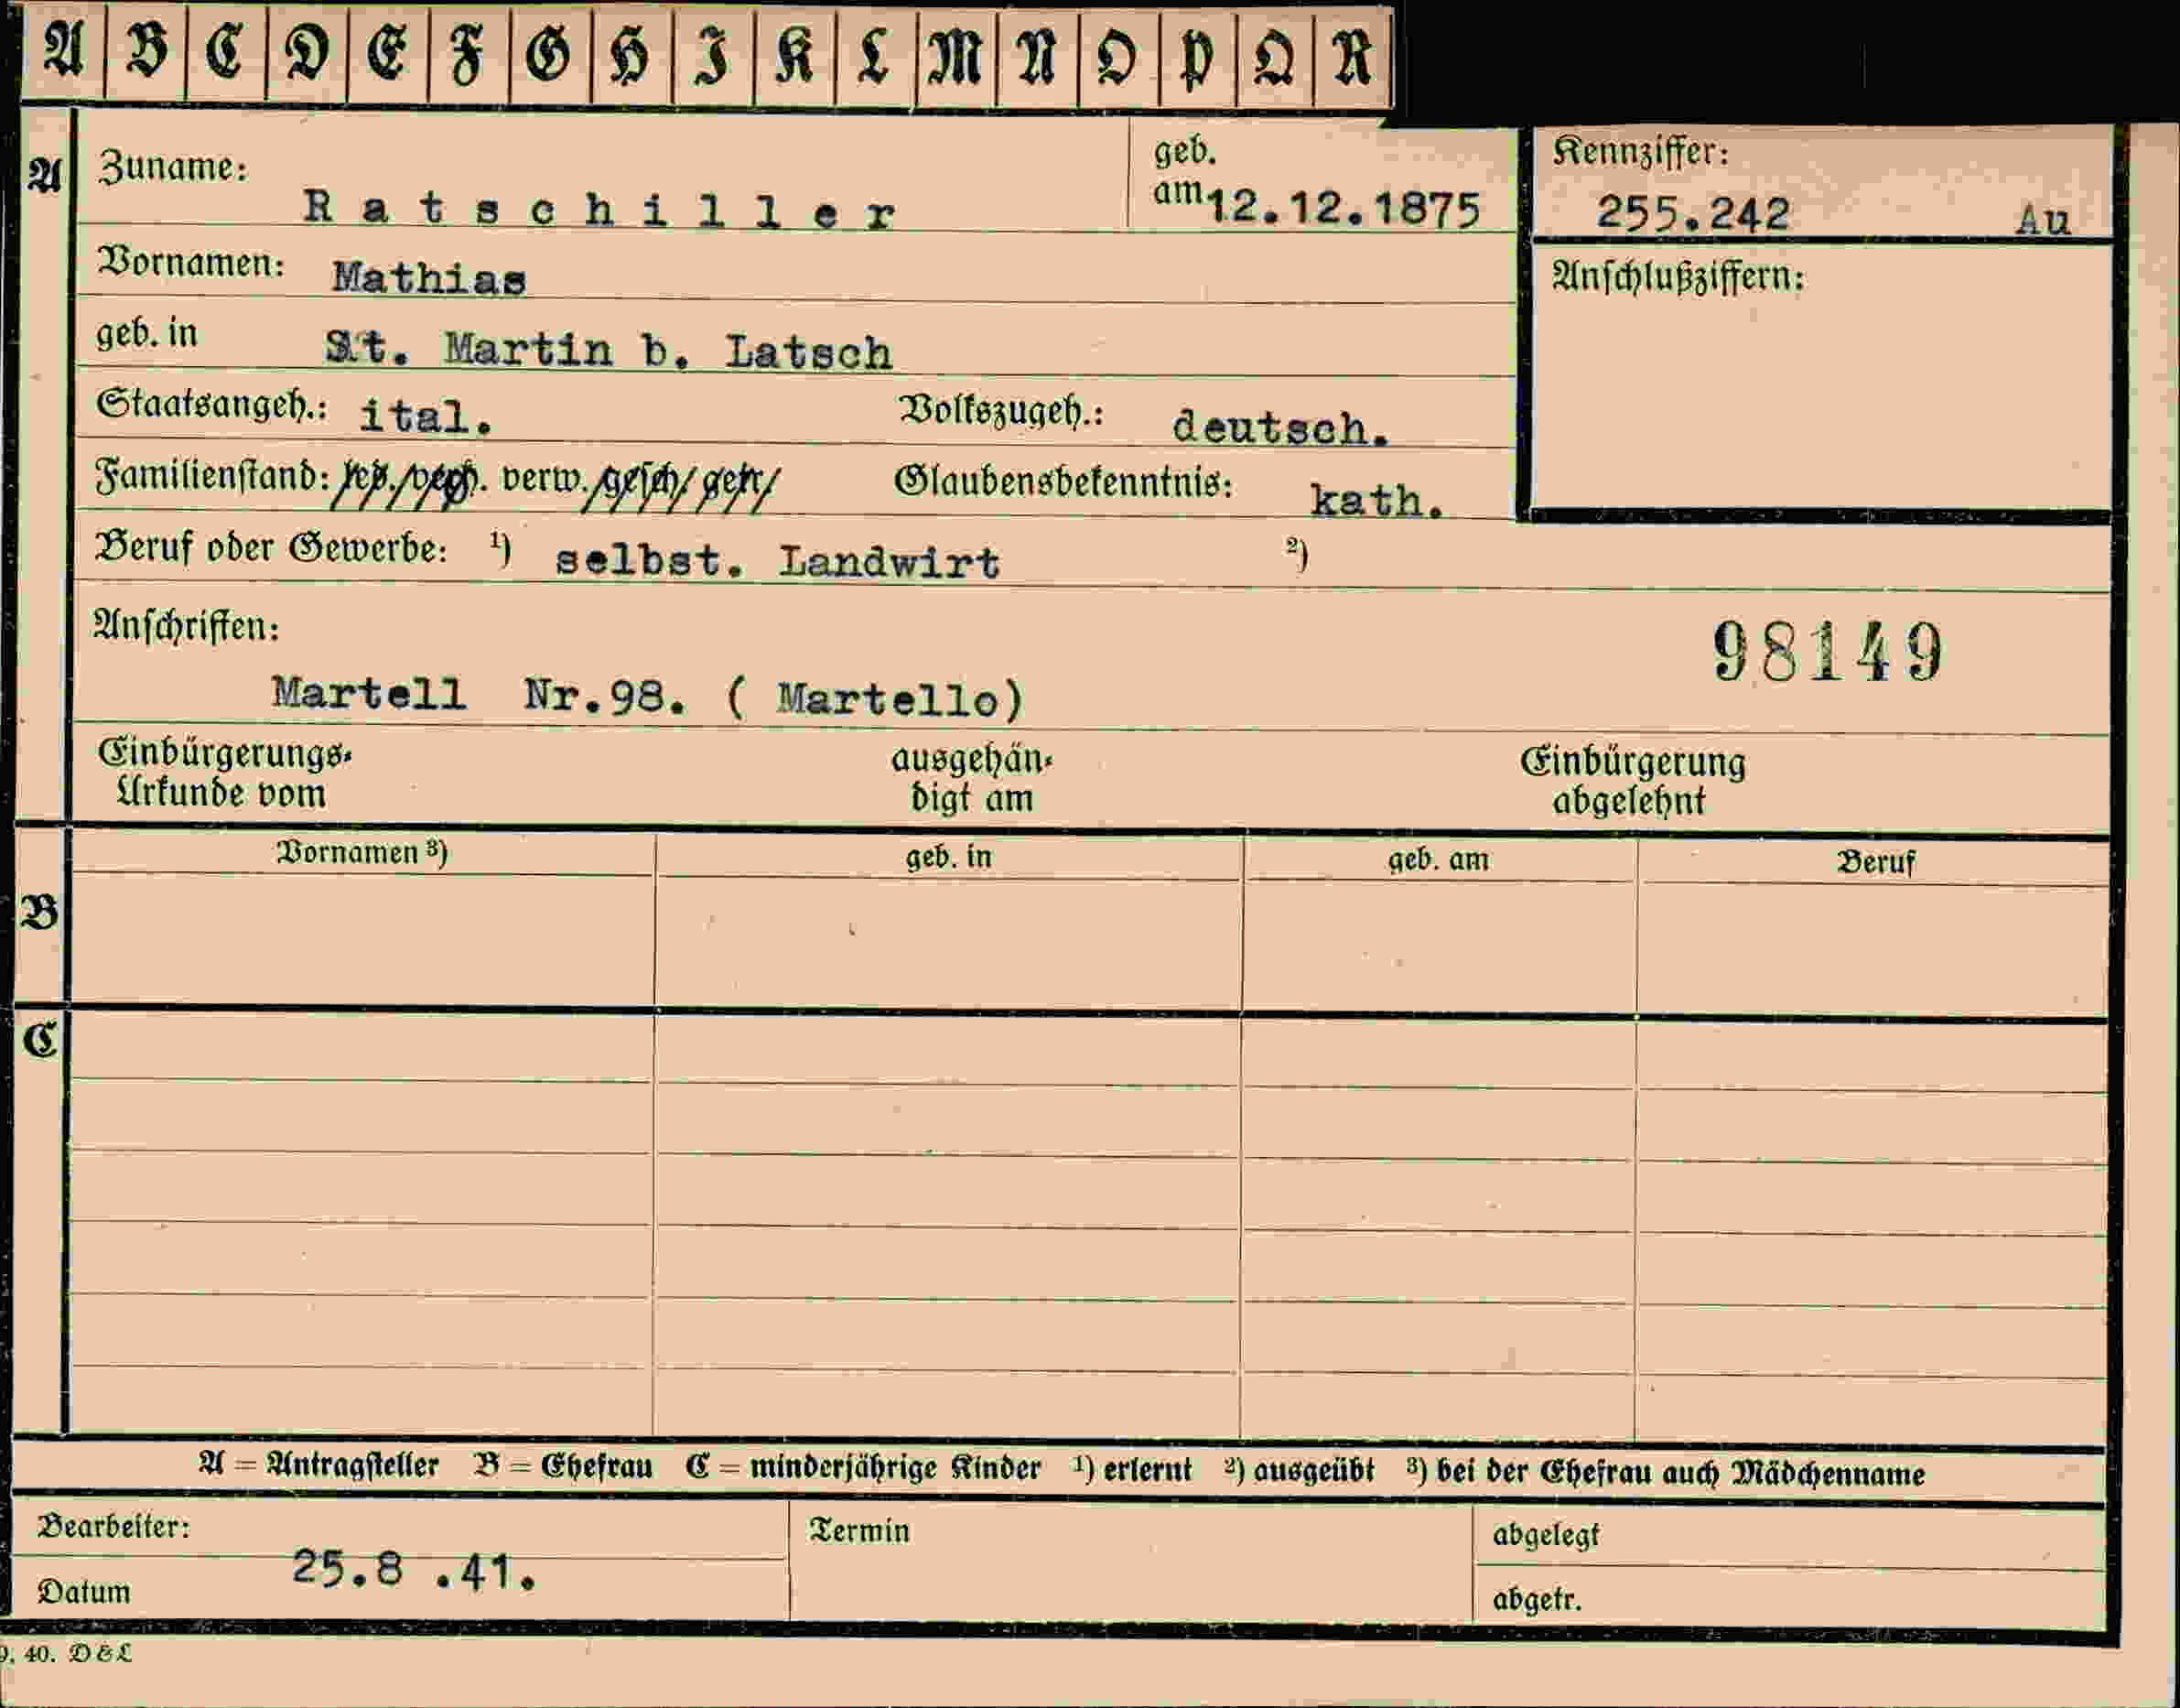 A B C D E F G H I K L M N O P Q R
A Zuname: Ratschiller geb. am 12.12.1875 Kennziffer: 255.242 Au
Vornamen: Mathias Anschlußziffern:
geb. in St. Martin b. Latsch
Staatsangeh.: ital. Volkszugeh.: deutsch.
Familienstand: led./verh. verw./gesch/getr/ Glaubensbekenntnis: kath.
Beruf oder Gewerbe: 1) selbst. Landwirt 2)
Anschriften: 98149
Martell Nr.98. ( Martello)
Einbürgerungs- ausgehän- Einbürgerung
Urkunde vom digt am abgelehnt
Vornamen 3) geb. in geb. am Beruf
B
C
A = Antragsteller B = Ehefrau C = minderjährige Kinder 1) erlernt 2) ausgeübt 3) bei der Ehefrau auch Mädchenname
Bearbeiter: Termin abgelegt
25.8 .41.
Datum abgetr.
9, 40. D & L